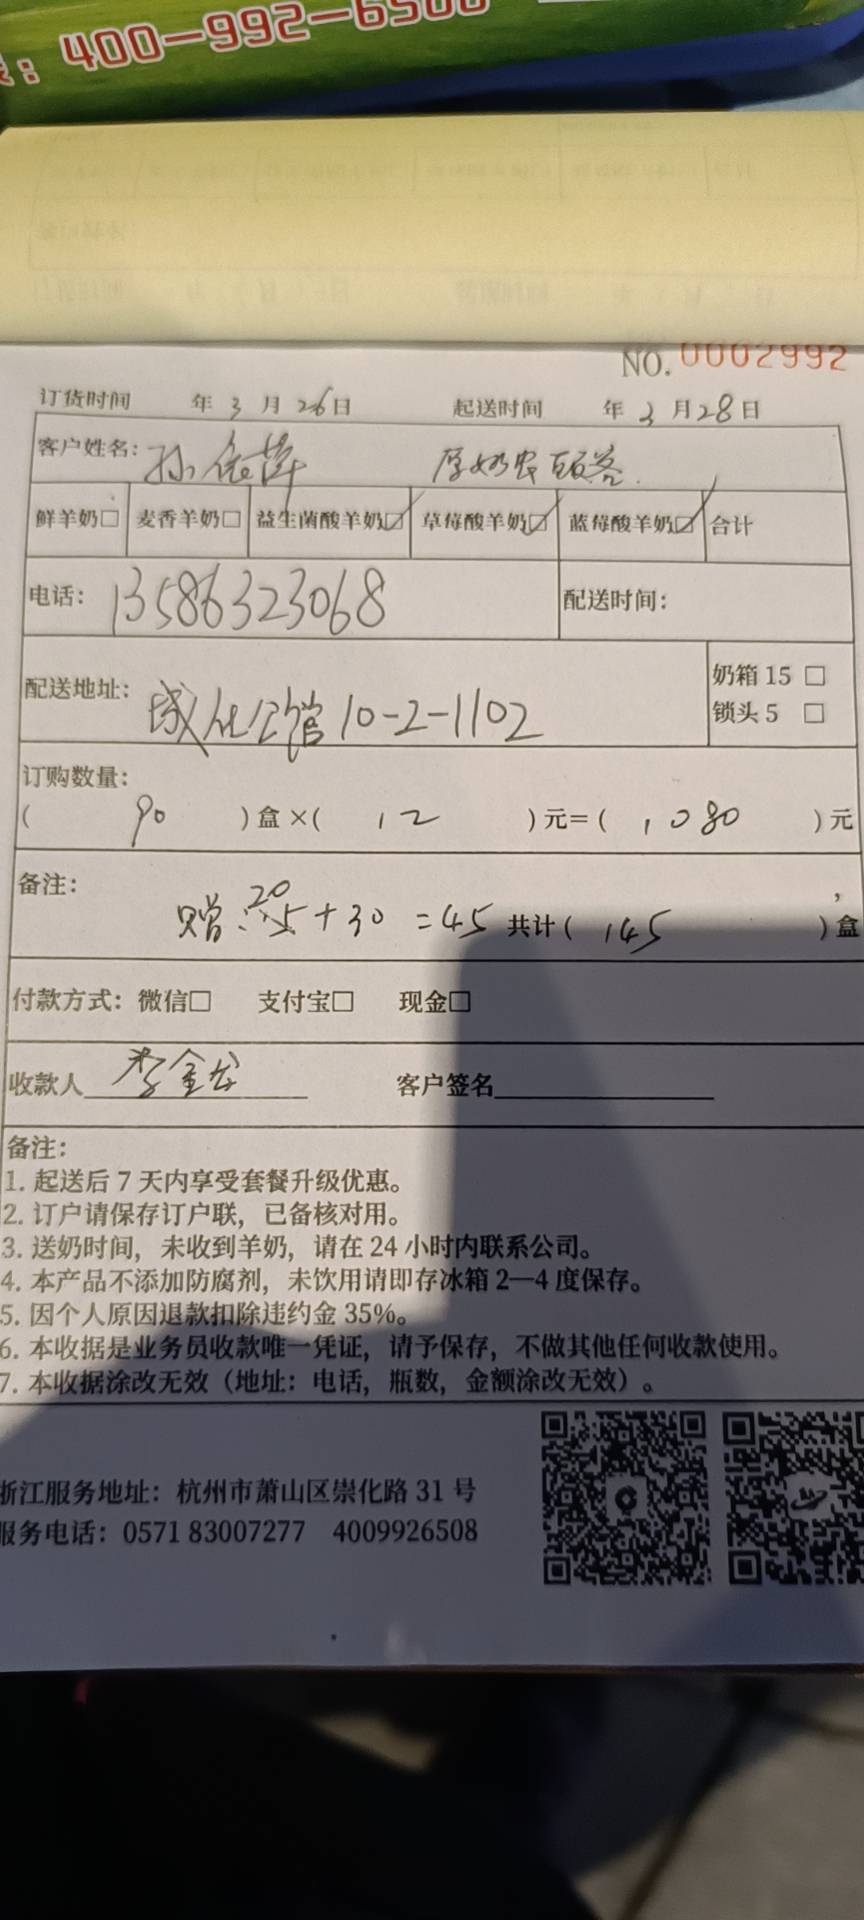 ：400—992—6508
NO. 0002992
订货时间 年 3 月 26 日 起送时间 年 3 月 28 日
客户姓名： 孙 厚奶农
鲜羊奶□ 麦香羊奶□ 益生菌酸羊奶☑ 草莓酸羊奶☑ 蓝莓酸羊奶☑ 合计
电话： 13586323068 配送时间：
配送地址： 城化公馆 10-2-1102 奶箱 15 □
锁头 5 □
订购数量：
( 90 ) 盒 ×( 12 ) 元＝( 1080 ) 元
备注：
赠： 20 5+30 =45 共计 ( 145 ) 盒
付款方式：微信□ 支付宝□ 现金□
收款人 李金龙 客户签名
备注：
1. 起送后 7 天内享受套餐升级优惠。
2. 订户请保存订户联，已备核对用。
3. 送奶时间，未收到羊奶，请在 24 小时内联系公司。
4. 本产品不添加防腐剂，未饮用请即存冰箱 2—4 度保存。
5. 因个人原因退款扣除违约金 35%。
6. 本收据是业务员收款唯一凭证，请予保存，不做其他任何收款使用。
7. 本收据涂改无效（地址：电话，瓶数，金额涂改无效）。
浙江服务地址：杭州市萧山区崇化路 31 号
服务电话：0571 83007277 4009926508